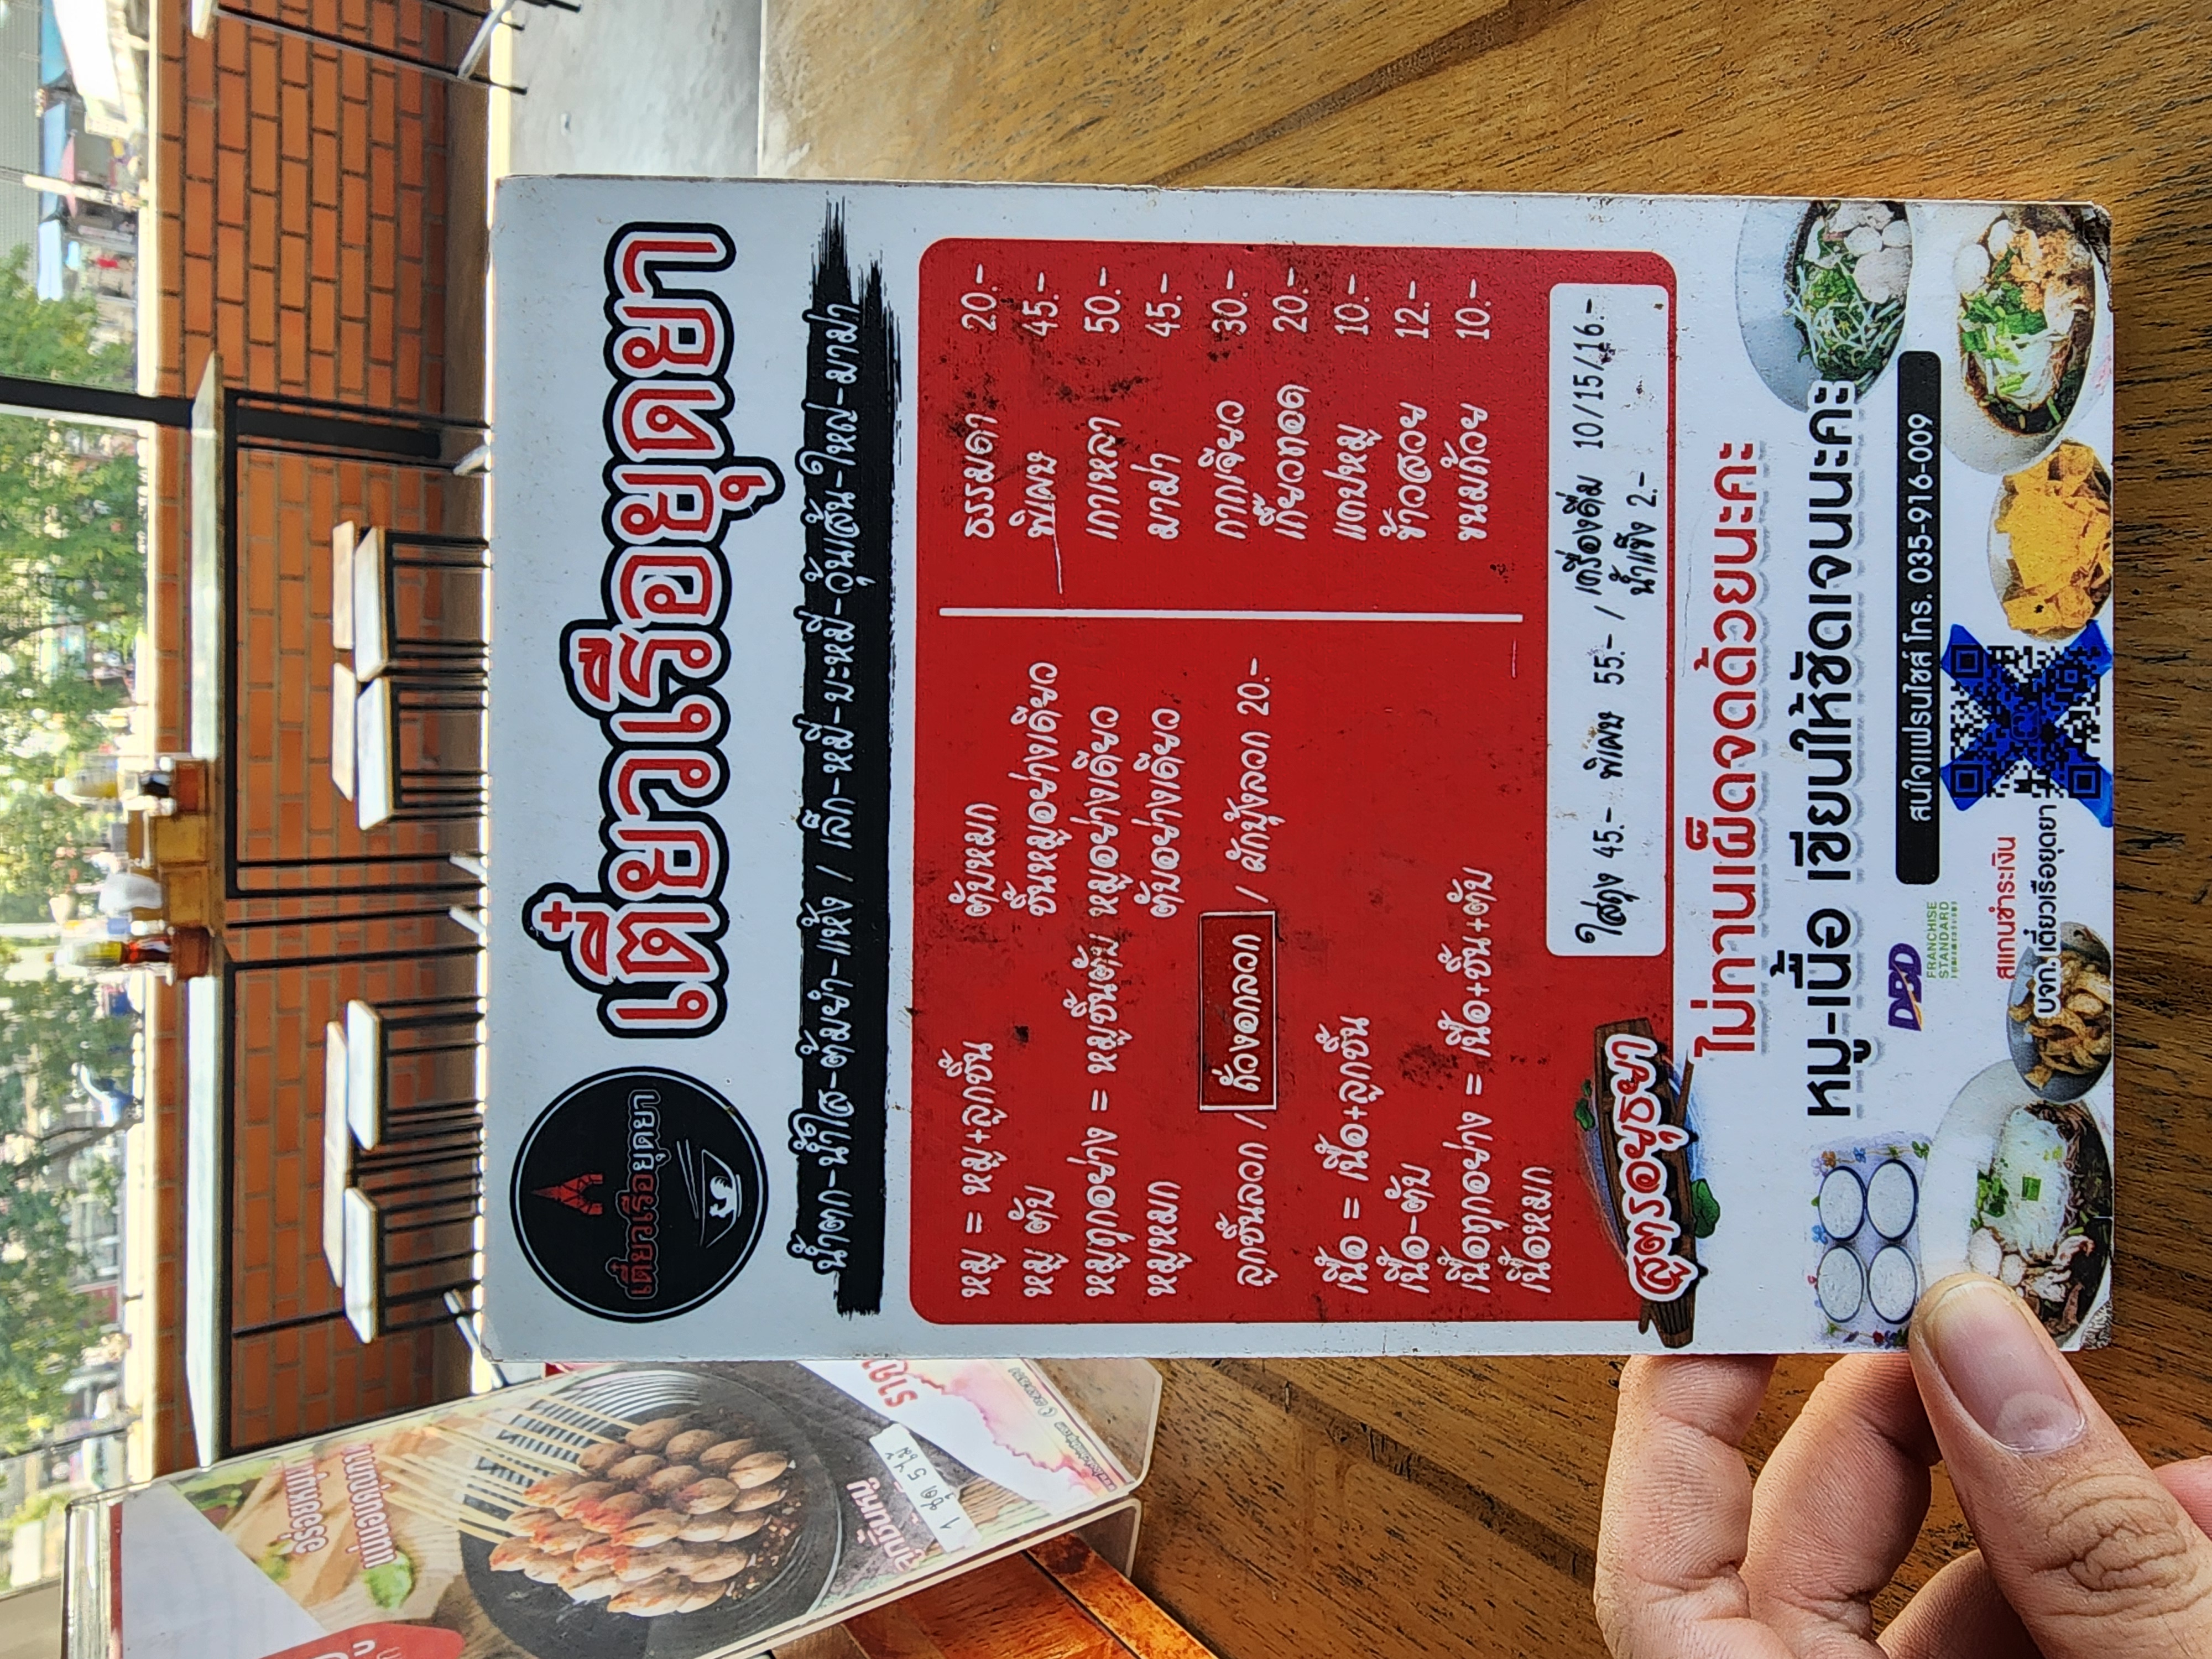 เตี๋ยวเรือยุดยา
เตี๋ยวเรือยุดยา
น้ำตก-น้ำใส-ต้มยำ-แห้ง / เล็ก-หมี่-บะหมี่-วุ้นเส้น-ใหญ่-มาม่า
หมู = หมู+ลูกชิ้น ตับหมก
หมู ตับ ชิ้นหมูอย่างเดียว
หมูทุกอย่าง = หมูชิ้นตับ หมูอย่างเดียว
หมูหมก ตับอย่างเดียว
ลูกชิ้นลวก / ถั่วงอกลวก / ผักบุ้งลวก 20.-
เนื้อ = เนื้อ+ลูกชิ้น
เนื้อ-ตับ
เนื้อทุกอย่าง = เนื้อ+ชิ้น+ตับ
เนื้อหมก
ธรรมดา 20.-
พิเศษ 45.-
เกาเหลา 50.-
มาม่า 45.-
กากเจียว 30.-
เกี๊ยวทอด 20.-
แคปหมู 10.-
ข้าวสวย 12.-
ขนมถ้วย 10.-
ใส่ถุง 45.- พิเศษ 55.- / เครื่องดื่ม 10/15/16.-
น้ำแข็ง 2.-
สูตรอยุธยา
ไม่ทานเผ็ดจดด้วยนะคะ
หมู-เนื้อ เขียนให้ชัดเจนนะคะ
สนใจแฟรนไชส์ โทร. 035-916-009
DBD
FRANCHISE
STANDARD
สแกนชำระเงิน
บจก.เตี๋ยวเรือยุดยา
ลูกชิ้นหมู
1 ชุด 5 ไม้